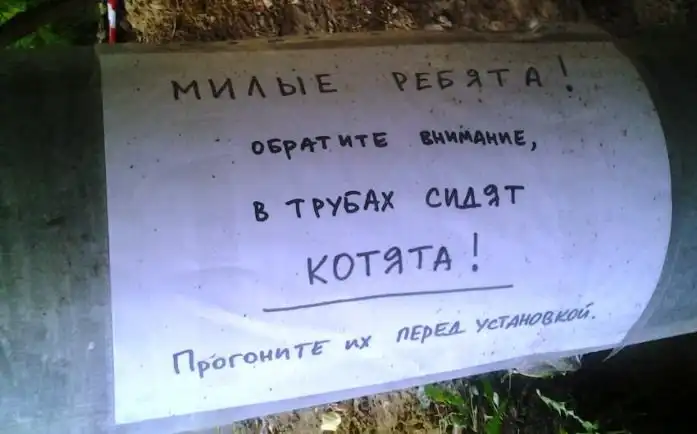 МИЛЫЕ РЕБЯТА!
ОБРАТИТЕ ВНИМАНИЕ,
В ТРУБАХ СИДЯТ
КОТЯТА!
Прогоните их перед установкой.